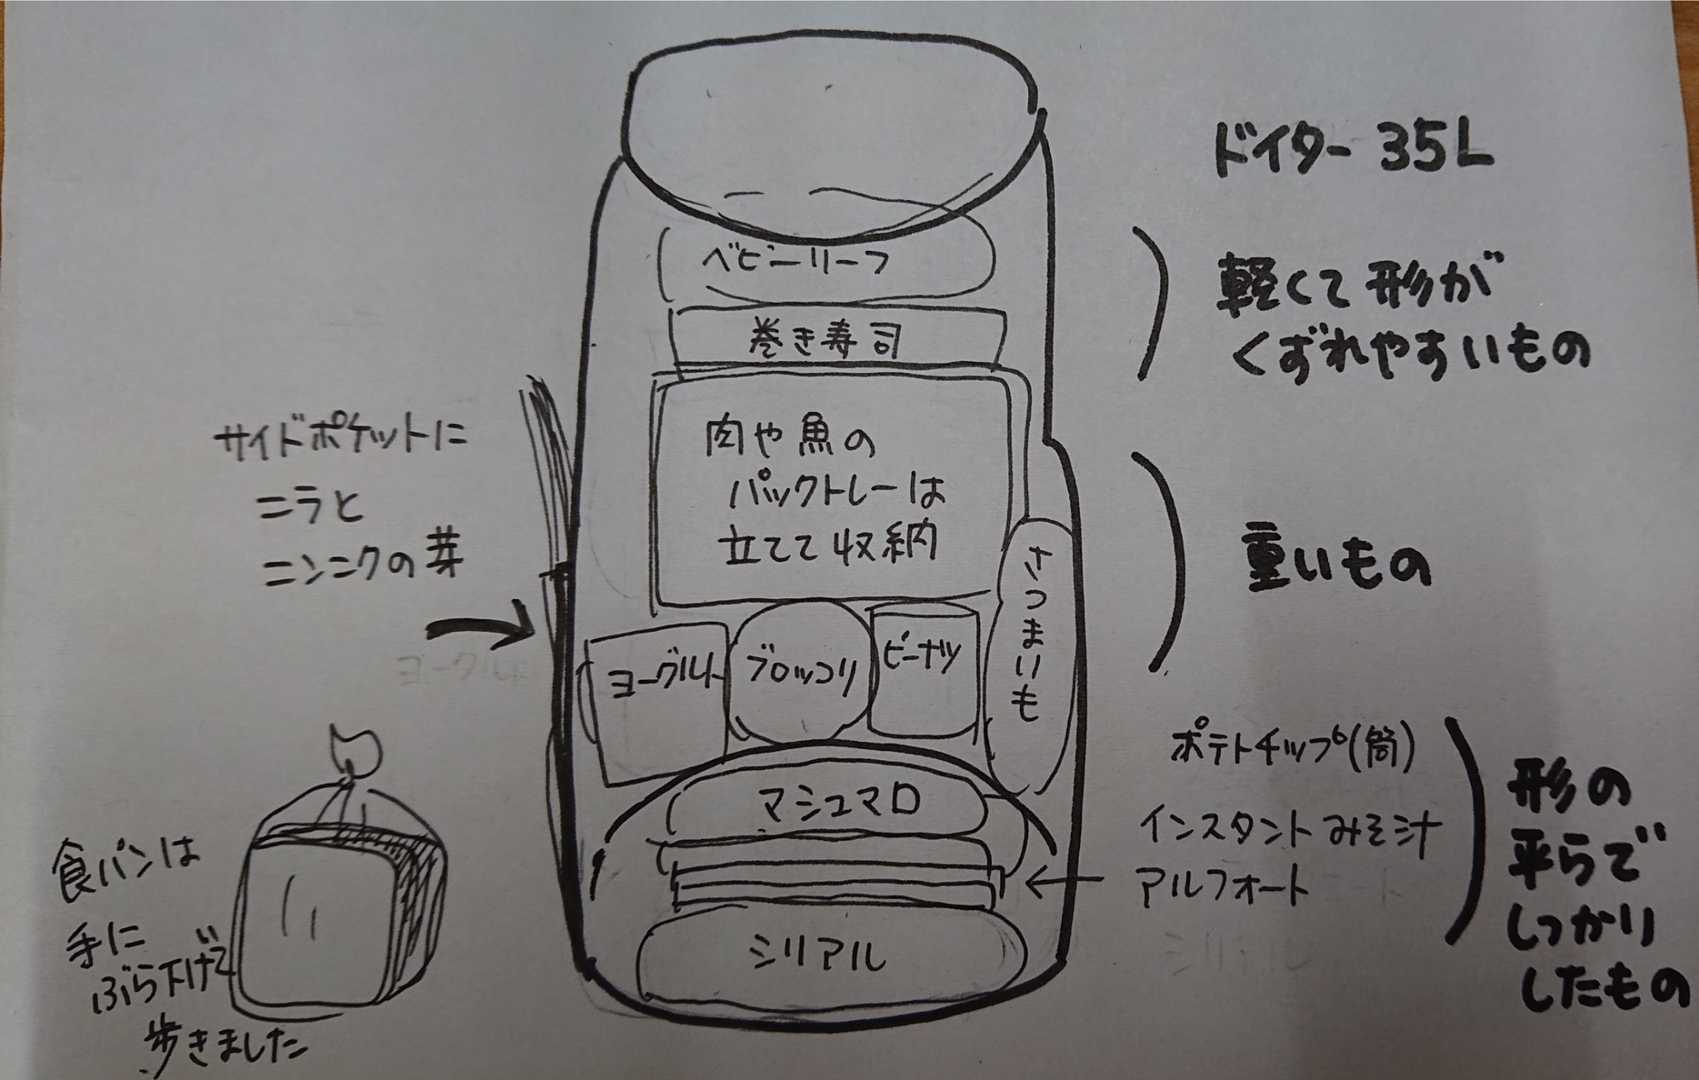 ドイター 35L
ベビーリーフ
巻き寿司
軽くて形が
くずれやすいもの
肉や魚の
パックトレーは
立てて収納
サイドポケットに
ニラと
ニンニクの芽
さつまいも
重いもの
ヨーグルト
ブロッコリ
ピーナツ
マシュマロ
ポテトチップ(筒)
インスタントみそ汁
アルフォート
形の
平らで
しっかり
したもの
シリアル
食パンは
手に
ぶら下げて
歩きました